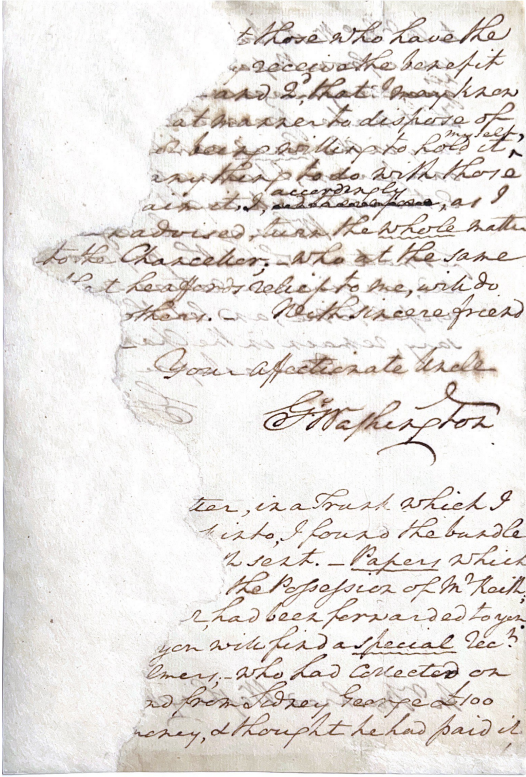 t those who have the
y receive the benefit
and 2d, that I may know
at manner to dispose of
s being willing to hold it myself,
anything to do with those
aim it. I, accordingly, as I
n advised, turn the whole matter
to the Chancellor; – who at the same
that he affords relief to me, will do
others. – With sincere friend
Your affectionate Uncle
Go Washington
tter, in a Trunk which I
into, I found the bundle
n sent. – Papers which
the Possession of Mr Keith
r, had been forwarded to you
you will find a special rect
lmers, – who had collected on
nd from Sidney George £100
oney, & thought he had paid it